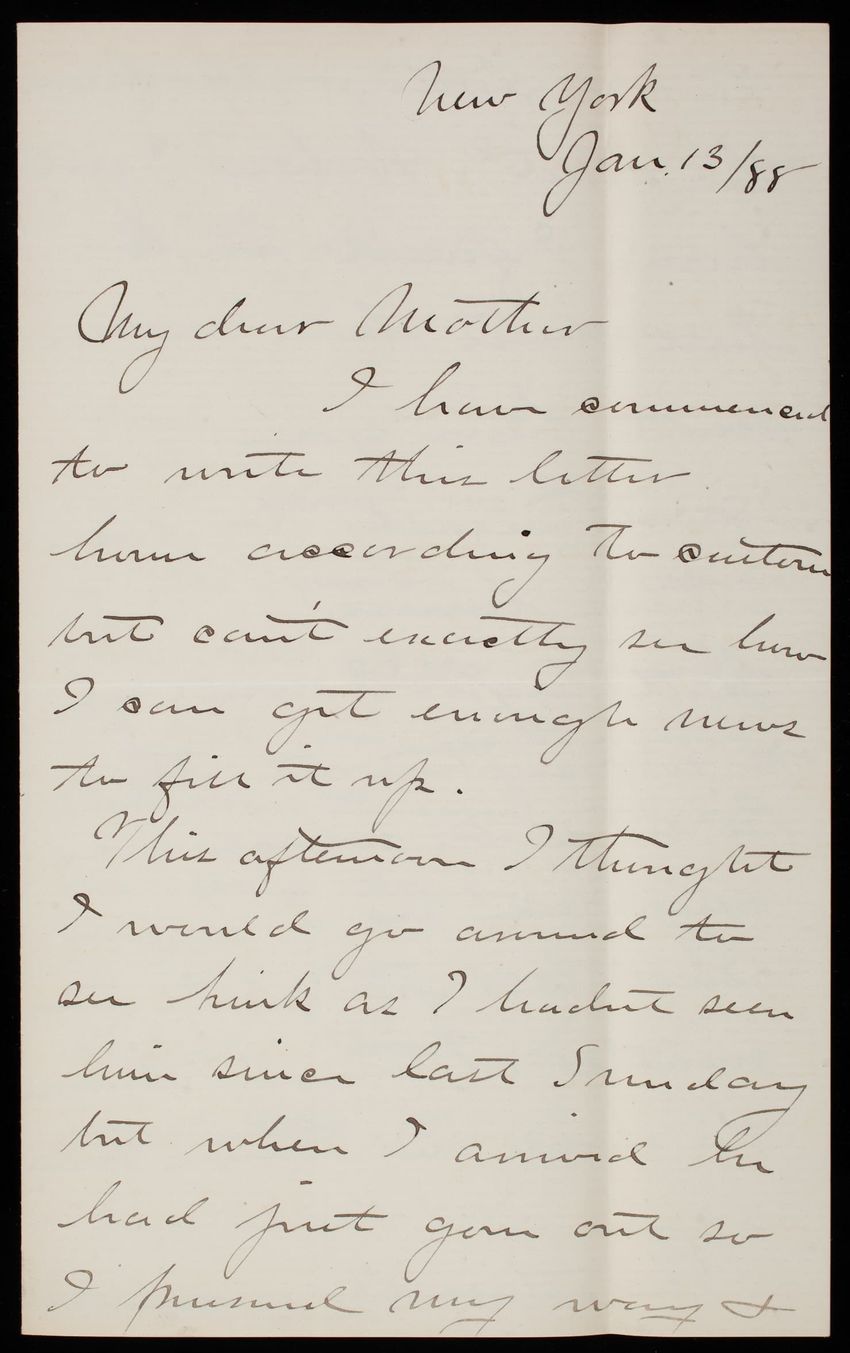 New York
Jan. 13/88
My dear Mother
I have commenced
to write this letter
home according to custom
but can't exactly see how
I can get enough news
to fill it up.
This afternoon I thought
I would go around to
see as I hadnt seen
him since last Sunday
but when I arrived he
had just gone out so
I pursued my way &